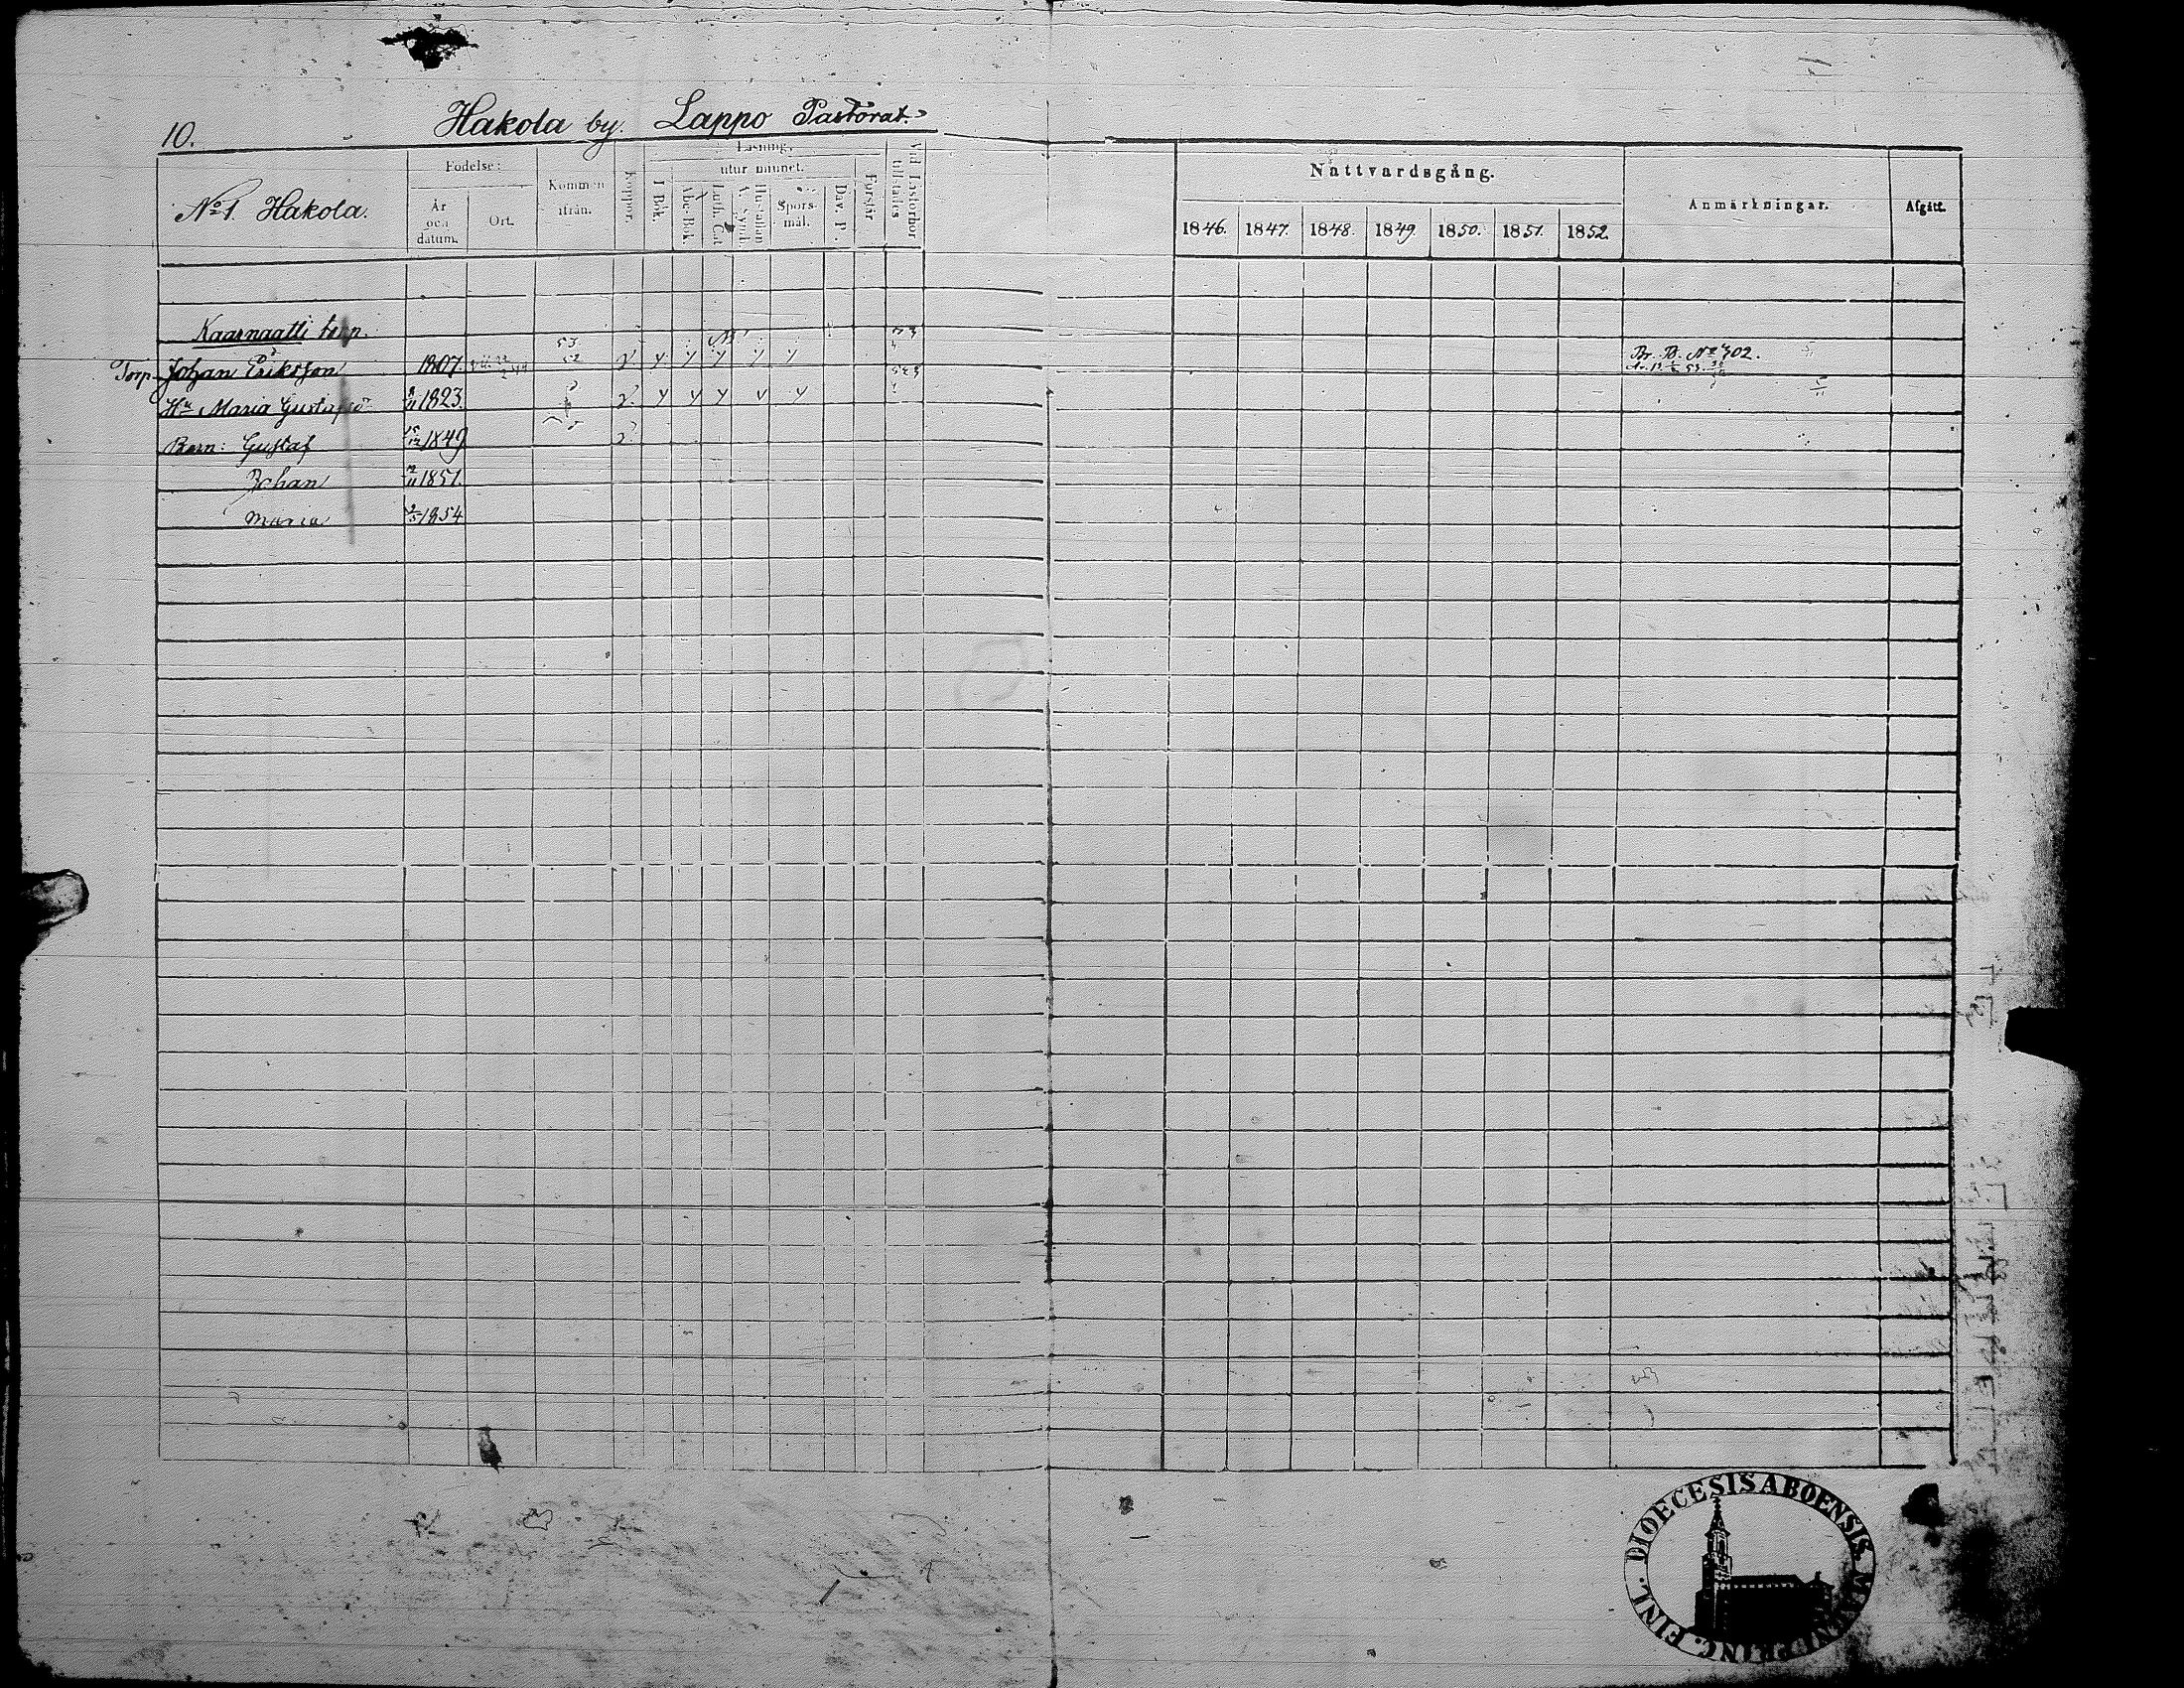 10.
Hakola by. Lappo Pastorat.
No 1. Hakola.
Födelse:
År och datum.
Ort.
Kommen ifrån.
Koppor.
Läsning,
utur minnet.
I Bok.
Abc-Bok.
Luth. Cat.
Hustaflan A. Symb.
Spörs-mål.
Dav. P.
Förstår
Vid Läsförhör tillstädes
Nattvardsgång.
1846. 1847. 1848. 1849. 1850. 1851. 1852.
Anmärkningar.
Afgått.
Kaarnaatti torp.
53.
52
Torp. Johan Eriksson 1807. Br. B. No 302.
Hu Maria Gustafsd 1823.
Barn: Gustaf 1849
Johan 1851.
Maria 1854
DIOECESIS ABOENSIS. FINL.